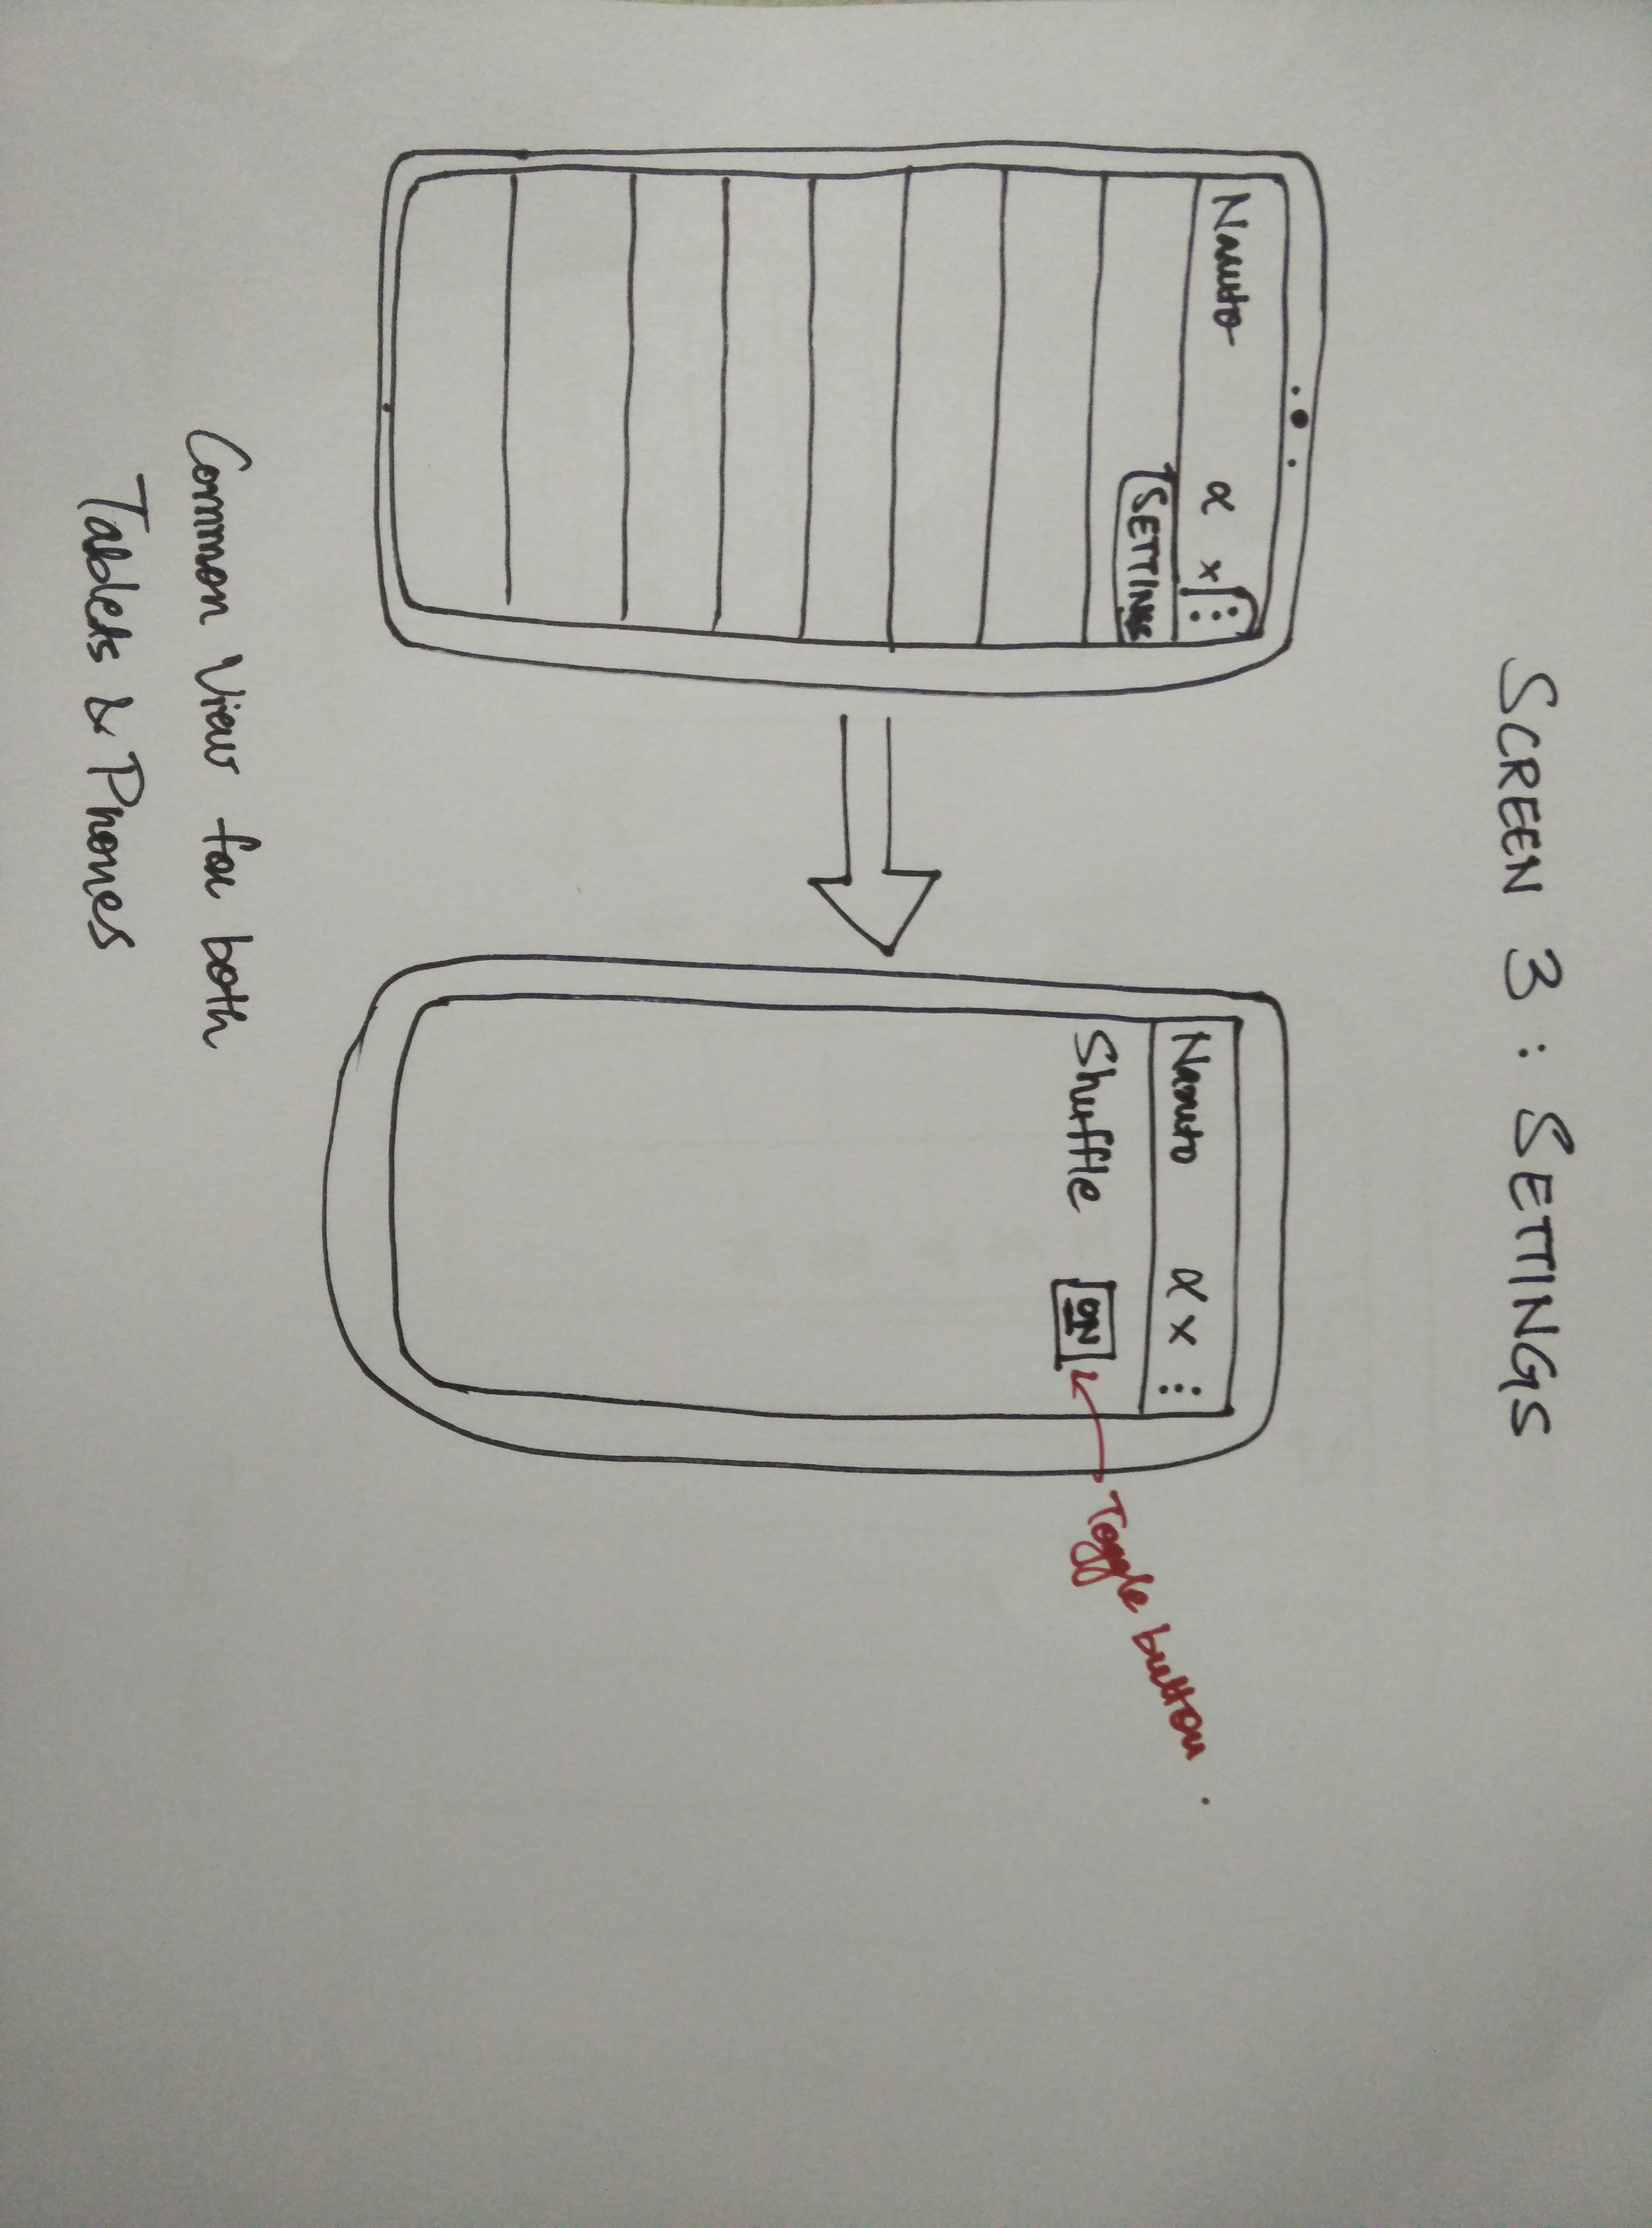 SCREEN 3 : SETTINGS
Naruto α x :
SETTINGS
Naruto α x :
Shuffle ON
Toggle button.
Common View for both
Tablets & Phones